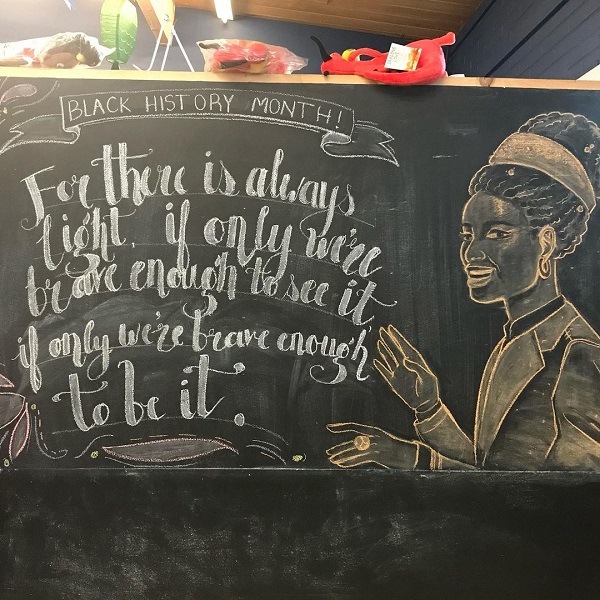 BLACK HISTORY MONTH!
For there is always
light, if only we're
brave enough to see it
if only we're brave enough
to be it.